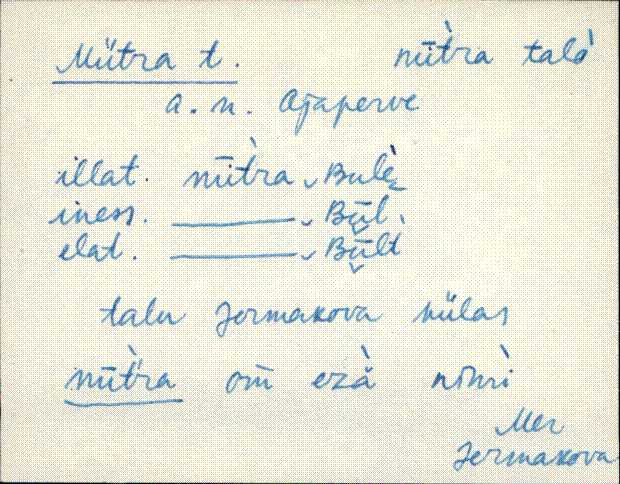 Mütra t. mi̮tra talo
a. n. Ojaperve
illat. mütra Bulè
iness. ——— Būl
elat. ——— Būlt
talu Jermakova külas
mütra om ezä nimi
Mer
Jermakova